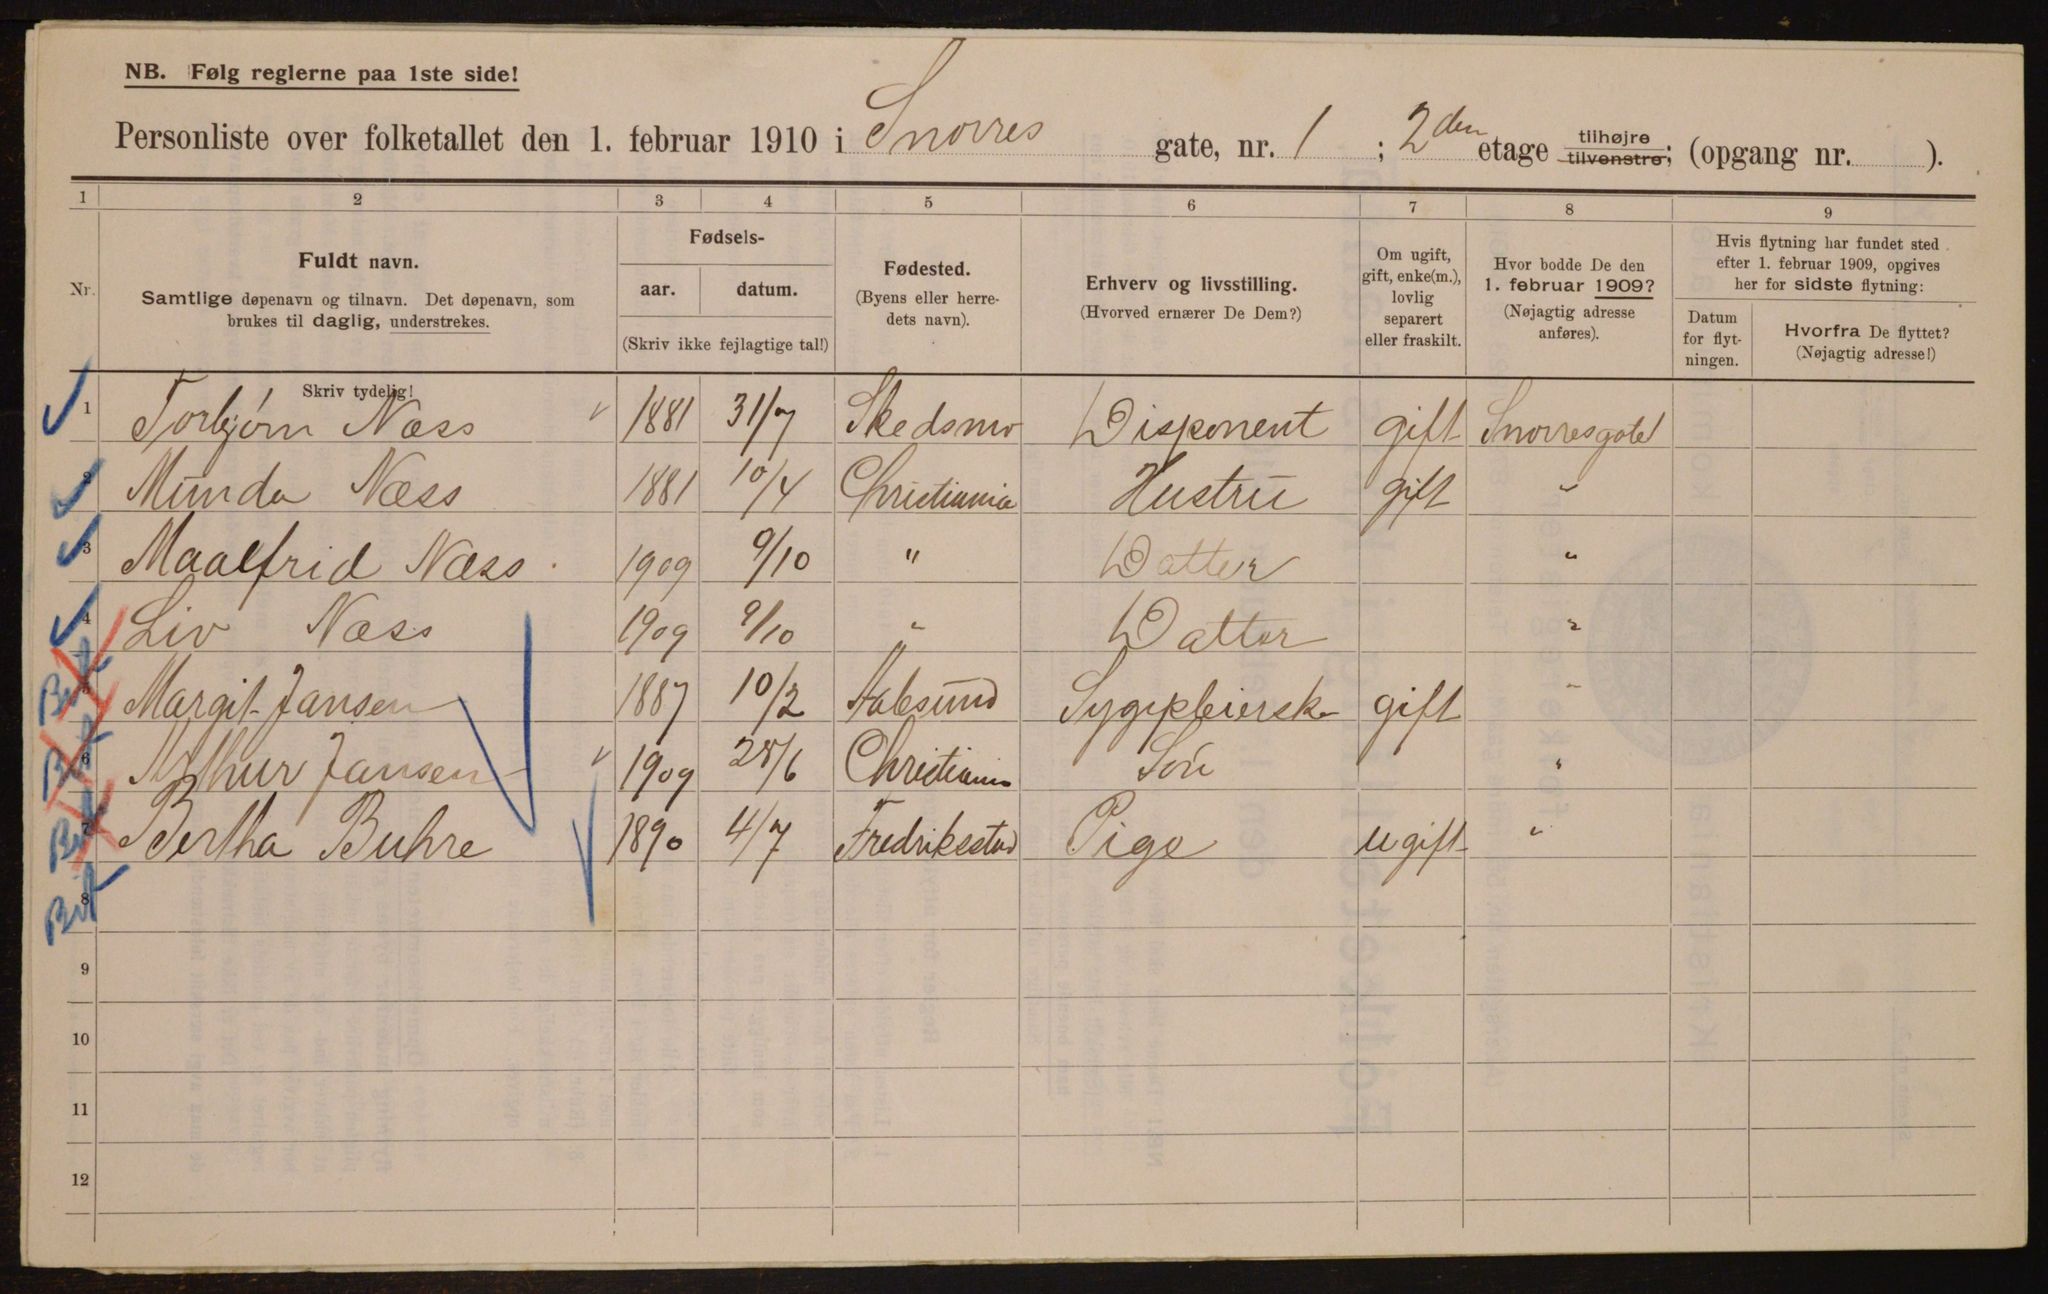 NB. Følg reglerne paa 1ste side!
Personliste over folketallet den 1. februar 1910 i Snorres gate, nr. 1; 2den etage tilhøjre tilvenstre; (opgang nr. ).
1 2 3 4 5 6 7 8 9
Nr.
Fuldt navn.
Samtlige døpenavn og tilnavn. Det døpenavn, som
brukes til daglig, understrekes.
Fødsels-
aar. datum.
(Skriv ikke fejlagtige tal!)
Fødested.
(Byens eller herre-
dets navn).
Erhverv og livsstilling.
(Hvorved ernærer De Dem?)
Om ugift,
gift, enke(m.),
lovlig
separert
eller fraskilt.
Hvor bodde De den
1. februar 1909?
(Nøjagtig adresse
anføres).
Hvis flytning har fundet sted
efter 1. februar 1909, opgives
her for sidste flytning:
Datum
for flyt-
ningen.
Hvorfra De flyttet?
(Nøjagtig adresse!)
Skriv tydelig!
1 Torbjørn Næss 1881 31/7 Skedsmo Disponent gift Snorresgate 1
2 Munda Næss 1881 10/4 Christiania Hustru gift "
3 Maalfrid Næss 1909 9/10 " Datter "
4 Liv Næss 1909 9/10 " Datter "
5 Margit Jansen 1887 10/2 Aalesund Sygepleierske gift "
6 Arthur Jansen 1909 28/6 Christiania Søn "
7 Bertha Buhre 1890 4/7 Fredrikstad Pige ugift "
8
9
10
11
12